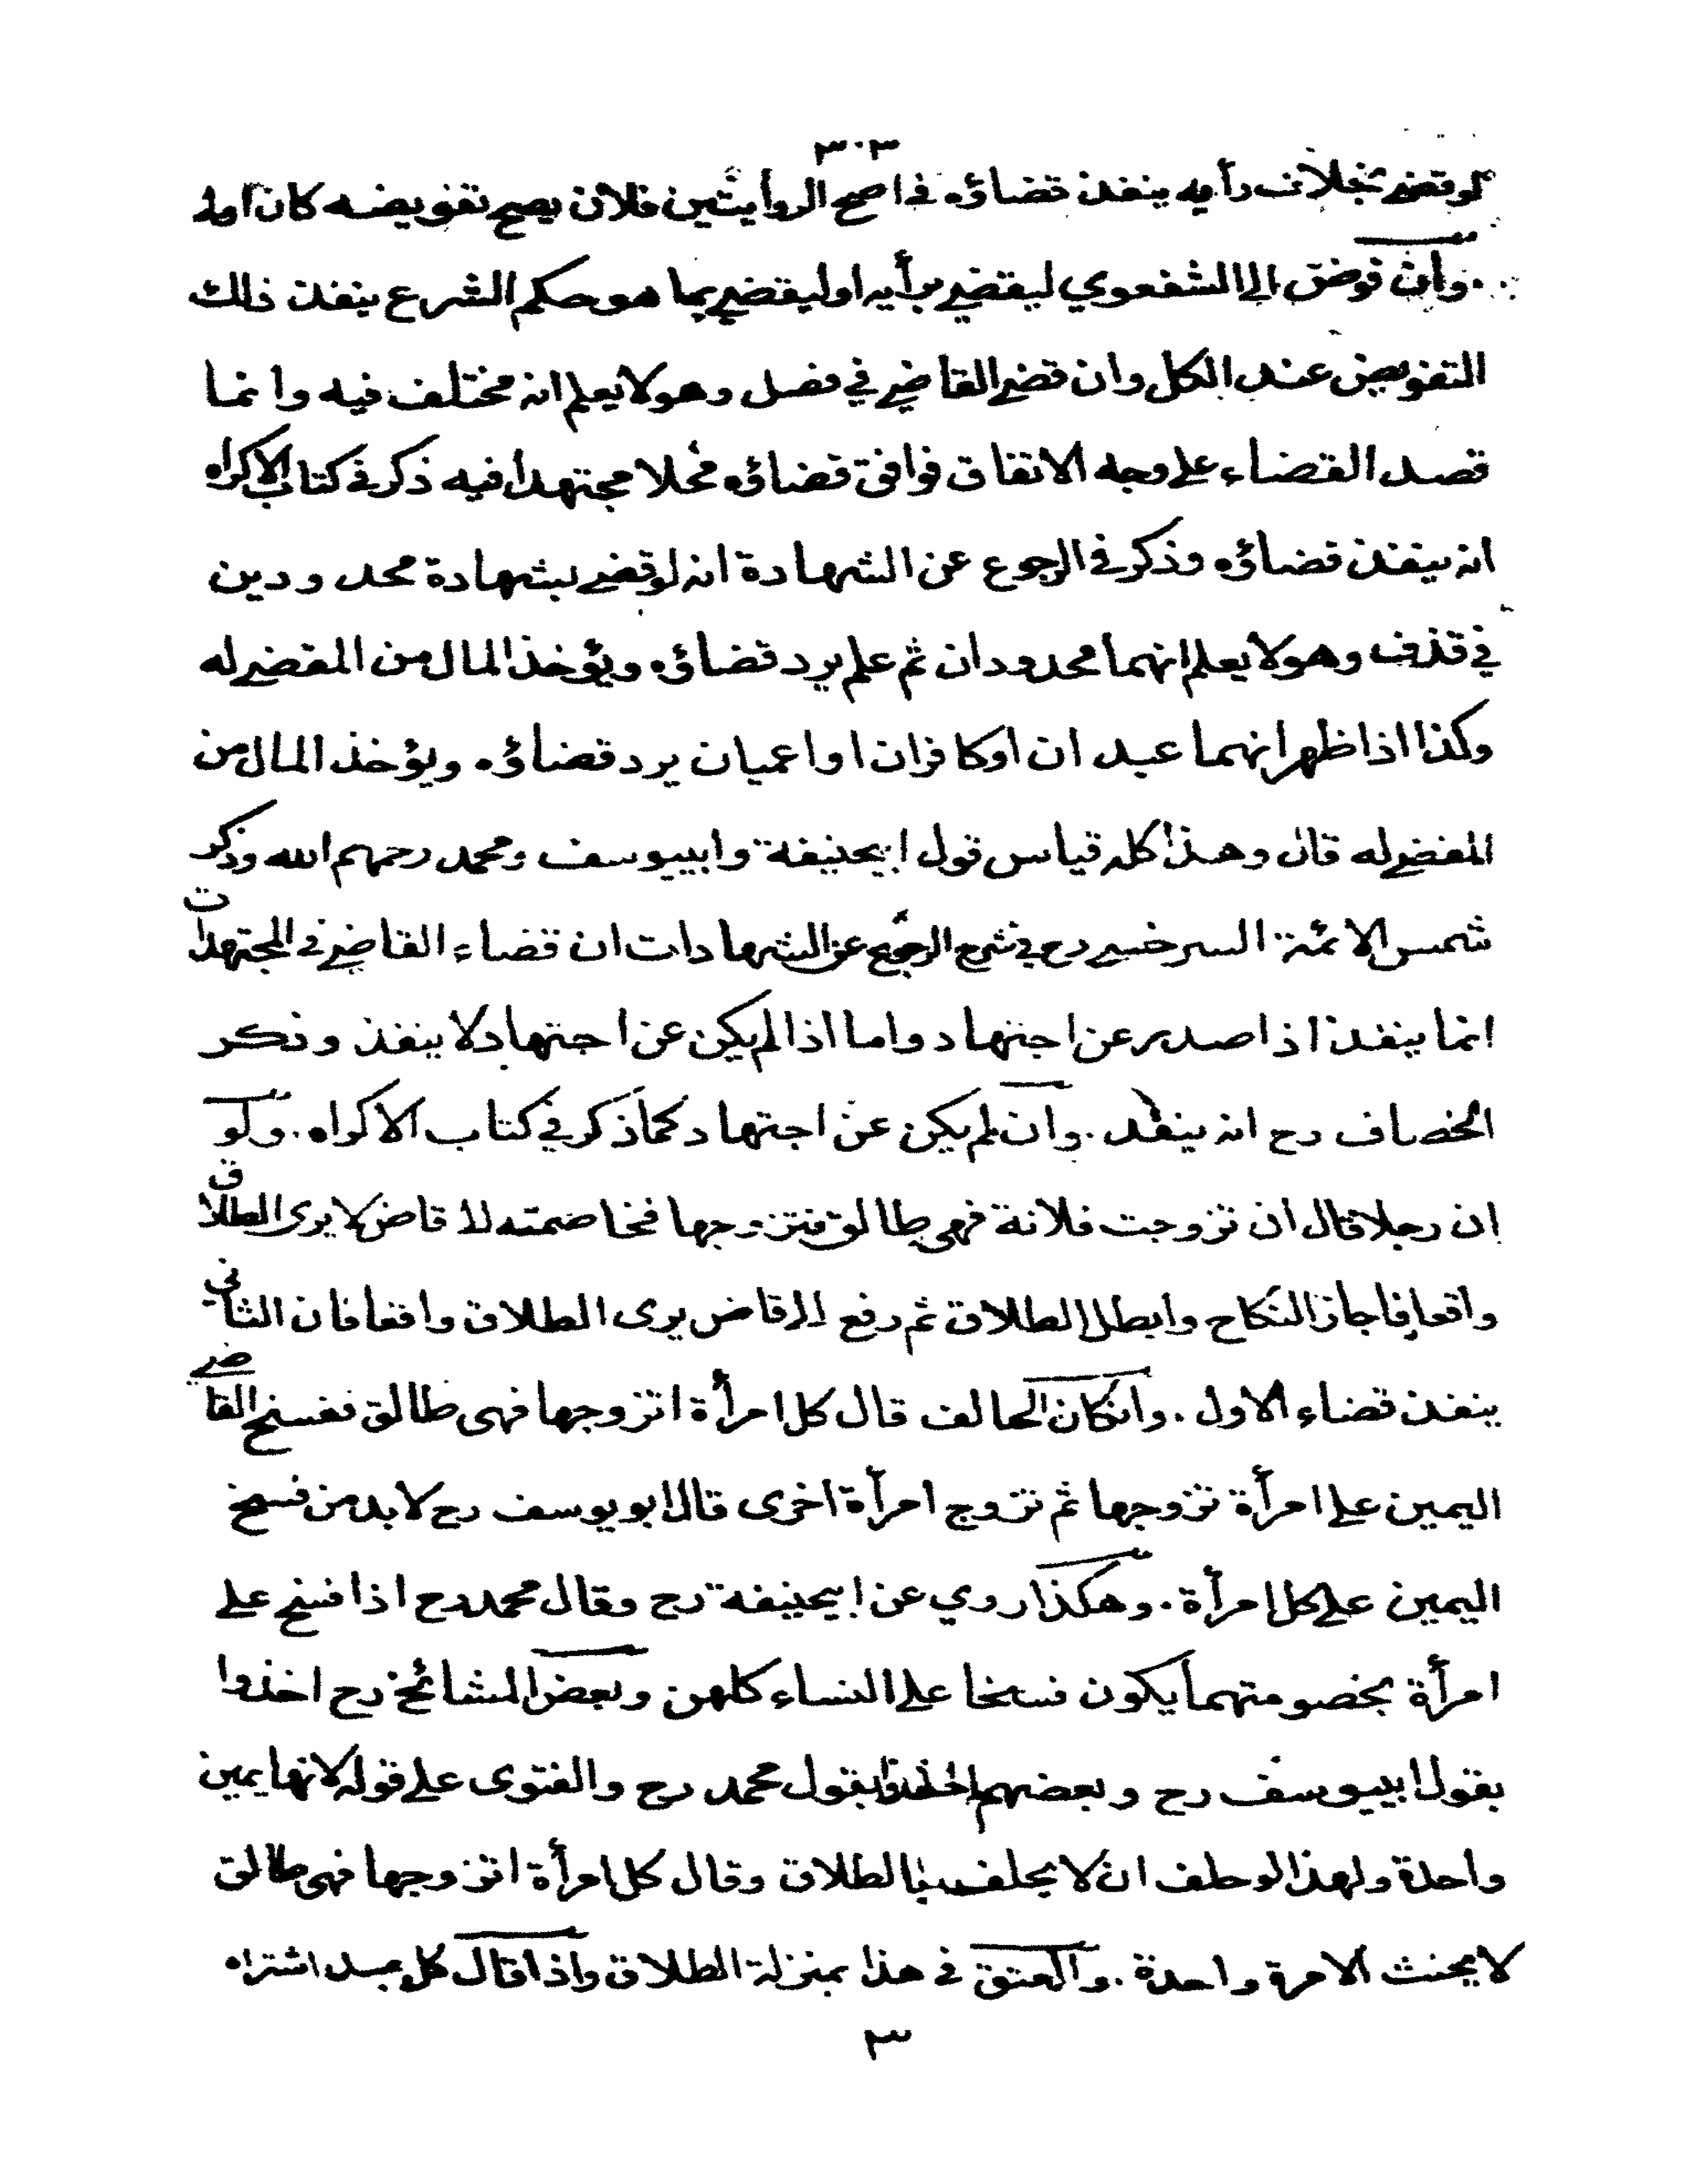 ٣٠٣
لو قضى بخلاف رأيه ينفذ قضاؤه في اصح الروايتين فلان يصح تفويضه كان اولى
وان فوض الى الشفعوي ليقضي برأيه او ليقضي بما هو حكم الشرع ينفذ ذلك
التفويض عند الكل وان قضى القاضي في فصل وهو لا يعلم انه مختلف فيه وانما
قصد القضاء على وجه الاتفاق فوافق قضاؤه محلا مجتهدا فيه ذكر في كتاب الاكراه
انه ينفذ قضاؤه وذكر في الرجوع عن الشهادة انه لو قضى بشهادة محدودين
في قذف وهو لا يعلم انهما محدودان ثم علم يرد قضاؤه ويؤخذ المال من المقضي له
وكذا اذا ظهر انهما عبدان او كافران او اعميان يرد قضاؤه ويؤخذ المال من
المقضي له قال وهذا كله قياس قول ابيحنيفة وابييوسف ومحمد رحمهم الله وذكر
شمس الائمة السرخسي رح في شرح الرجوع عن الشهادات ان قضاء القاضي في المجتهدات
انما ينفذ اذا صدر عن اجتهاد واما اذا لم يكن عن اجتهاد لا ينفذ وذكر
الخصاف رح انه ينفذ . وان لم يكن عن اجتهاد كما ذكر في كتاب الاكراه . ولو
ان رجلا قال ان تزوجت فلانة فهي طالق فتزوجها فخاصمته الى قاض لا يرى الطلاق
واقعا فاجاز النكاح وابطل الطلاق ثم رفع الى قاض يرى الطلاق واقعا فان الثاني
ينفذ قضاء الاول . وانكان الحالف قال كل امرأة اتزوجها فهى طالق ففسخ القاضي
اليمين على امرأة تزوجها ثم تزوج امرأة اخرى قال ابو يوسف رح لا بد من فسخ
اليمين على كل امرأة . وهكذا روي عن ابيحنيفة رح وقال محمد رح اذا فسخ على
امرأة بخصومتهما يكون فسخا على النساء كلهن وبعض المشائخ رح اخذوا
بقول ابييوسف رح وبعضهم اخذوا بقول محمد رح والفتوى على قوله لانها يمين
واحدة ولهذا لو حلف ان لا يحلف بالطلاق وقال كل امرأة اتزوجها فهى طالق
لا يحنث الا مرة واحدة . والعتق في هذا بمنزلة الطلاق واذا قال كل عبد اشتراه
٣